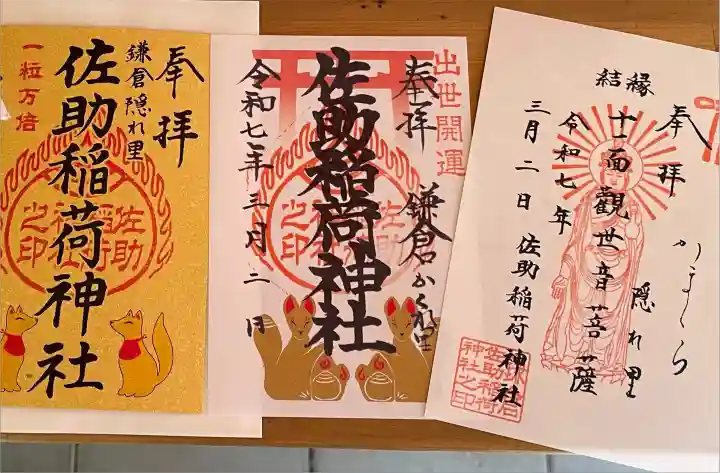 奉拝
鎌倉隠れ里
佐助稲荷神社
一粒万倍
佐助
稲荷
神社
之印
出世開運
奉拝
鎌倉かくれ里
佐助稲荷神社
令和七年三月二日
佐助
稲荷
神社
之印
奉拝
かまくら
隠れ里
結縁
十一面観世音菩薩
令和七年
三月二日
佐助稲荷神社
鎌倉
佐助稲荷
神社之印